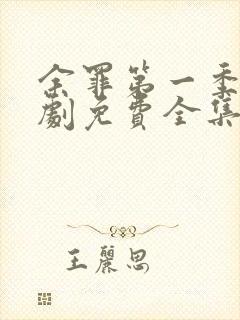 余罪第一季
劇免費全集
王麗思